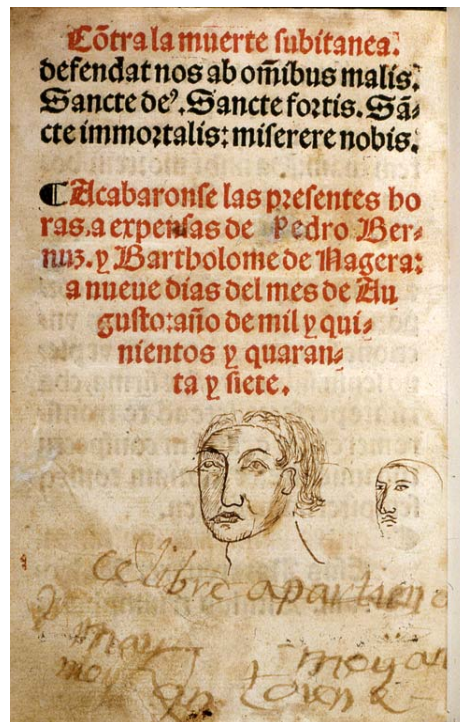 Cõtra la muerte subitanea.
defendat nos ab om̃ibus malis.
Sancte de⁹. Sancte fortis. Sã-
cte immortalis: miserere nobis.
¶ Acabaronse las presentes ho
ras, a expensas de Pedro Ber-
nuz. y Bartholome de Nagera:
a nueue dias del mes de Au
gusto: año de mil y qui-
nientos y quaran-
ta y siete.
ce libre apartien
moy
moy an
moy